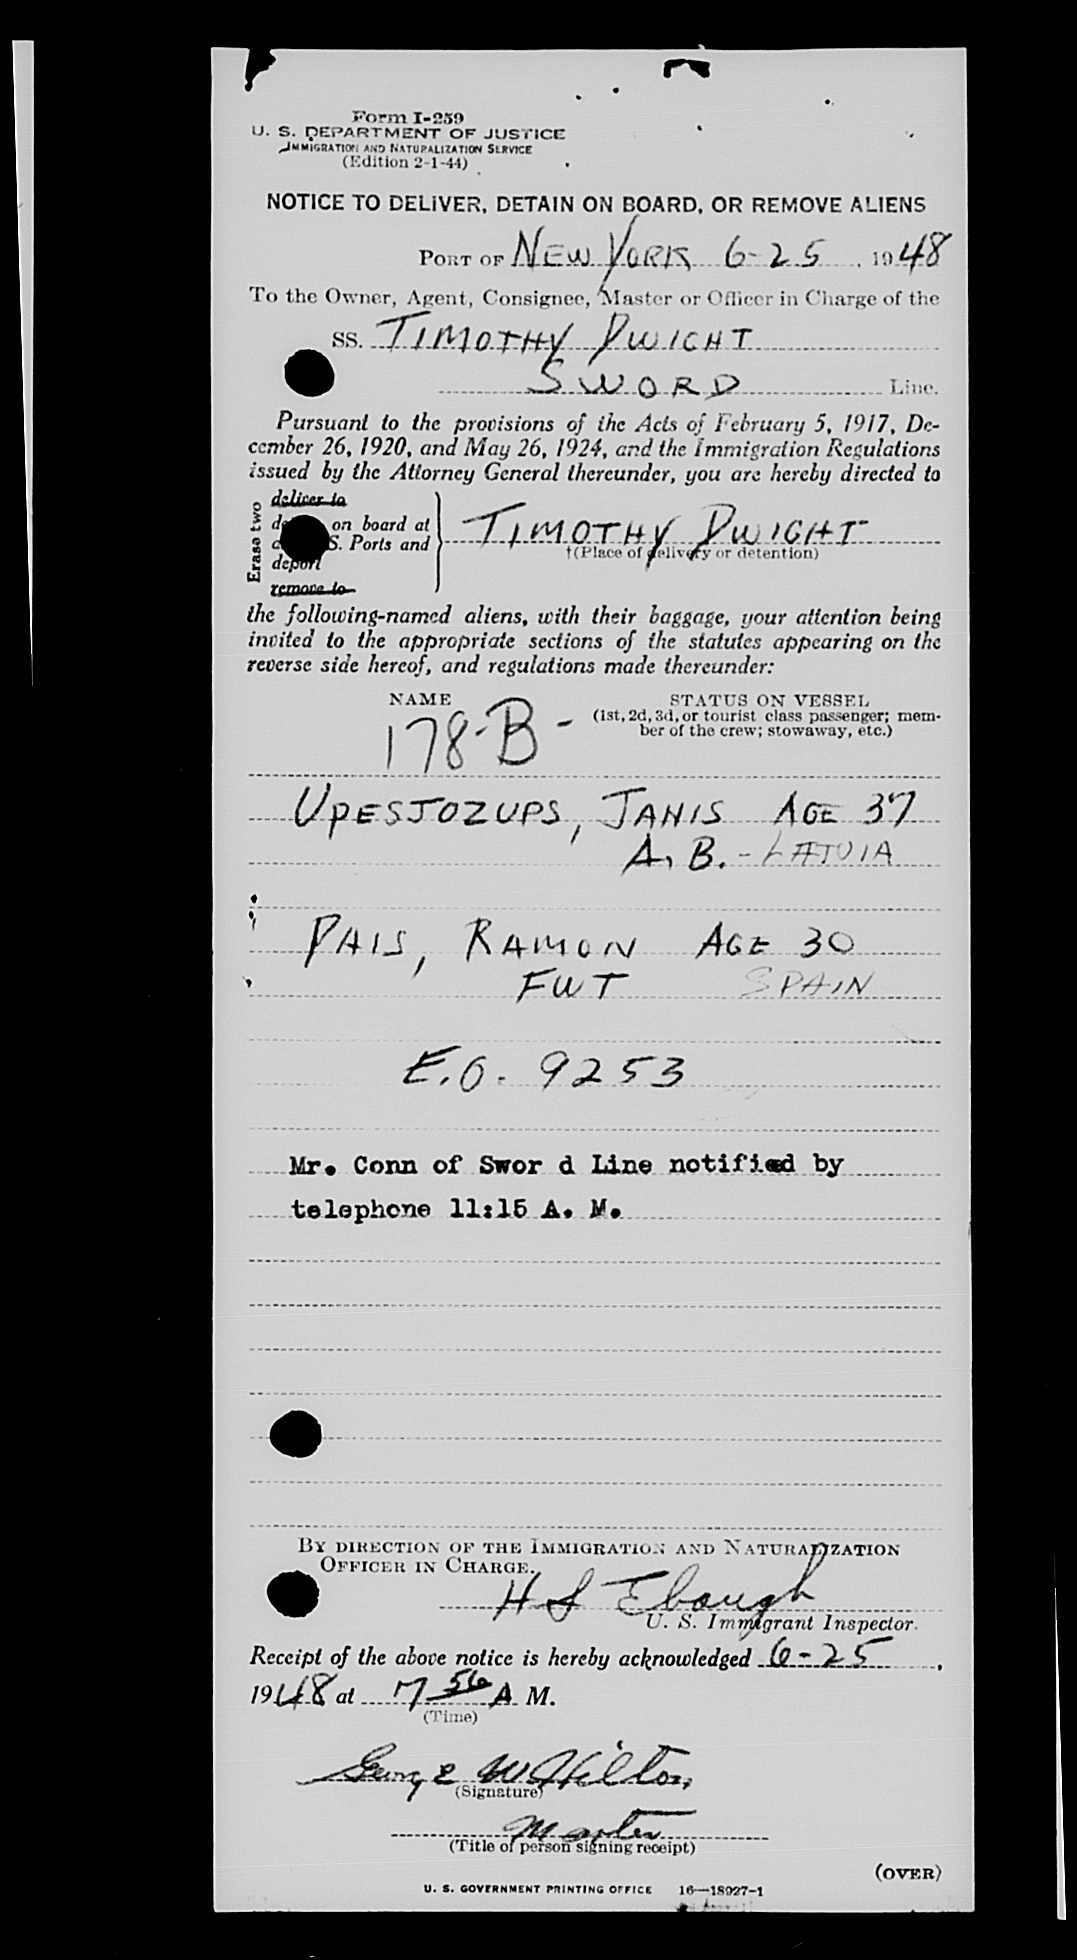 Form I-259
U. S. DEPARTMENT OF JUSTICE
IMMIGRATION AND NATURALIZATION SERVICE
(Edition 2-1-44)
NOTICE TO DELIVER, DETAIN ON BOARD, OR REMOVE ALIENS
PORT OF NEW YORK 6-25, 1948
To the Owner, Agent, Consignee, Master or Officer in Charge of the
SS. TIMOTHY DWIGHT
SWORD Line.
Pursuant to the provisions of the Acts of February 5, 1917, De-
cember 26, 1920, and May 26, 1924, and the Immigration Regulations
issued by the Attorney General thereunder, you are hereby directed to
Erase two
deliver to
on board at
S. Ports and
deport
remove to
TIMOTHY DWIGHT
†(Place of delivery or detention)
the following-named aliens, with their baggage, your attention being
invited to the appropriate sections of the statutes appearing on the
reverse side hereof, and regulations made thereunder:
NAME STATUS ON VESSEL
(1st, 2d, 3d, or tourist class passenger; mem-
ber of the crew; stowaway, etc.)
178-B-
UPESJOZUPS, JANIS AGE 37
A. B. - LATVIA
PAIS, RAMON AGE 30
FWT SPAIN
E.O. 9253
Mr. Conn of Swor d Line notified by
telephone 11:15 A. M.
BY DIRECTION OF THE IMMIGRATION AND NATURALIZATION
OFFICER IN CHARGE.
H S Ebaugh
U. S. Immigrant Inspector.
Receipt of the above notice is hereby acknowledged 6-25,
1948 at 7 56 A M.
(Time)
George W Hilton
(Signature)
Master
(Title of person signing receipt)
(OVER)
U. S. GOVERNMENT PRINTING OFFICE 16—18927-1